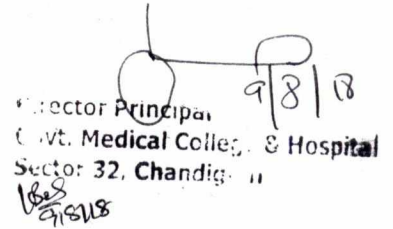 9/8/18
Director Principal
Govt. Medical College & Hospital
Sector 32, Chandigarh
9/8/18